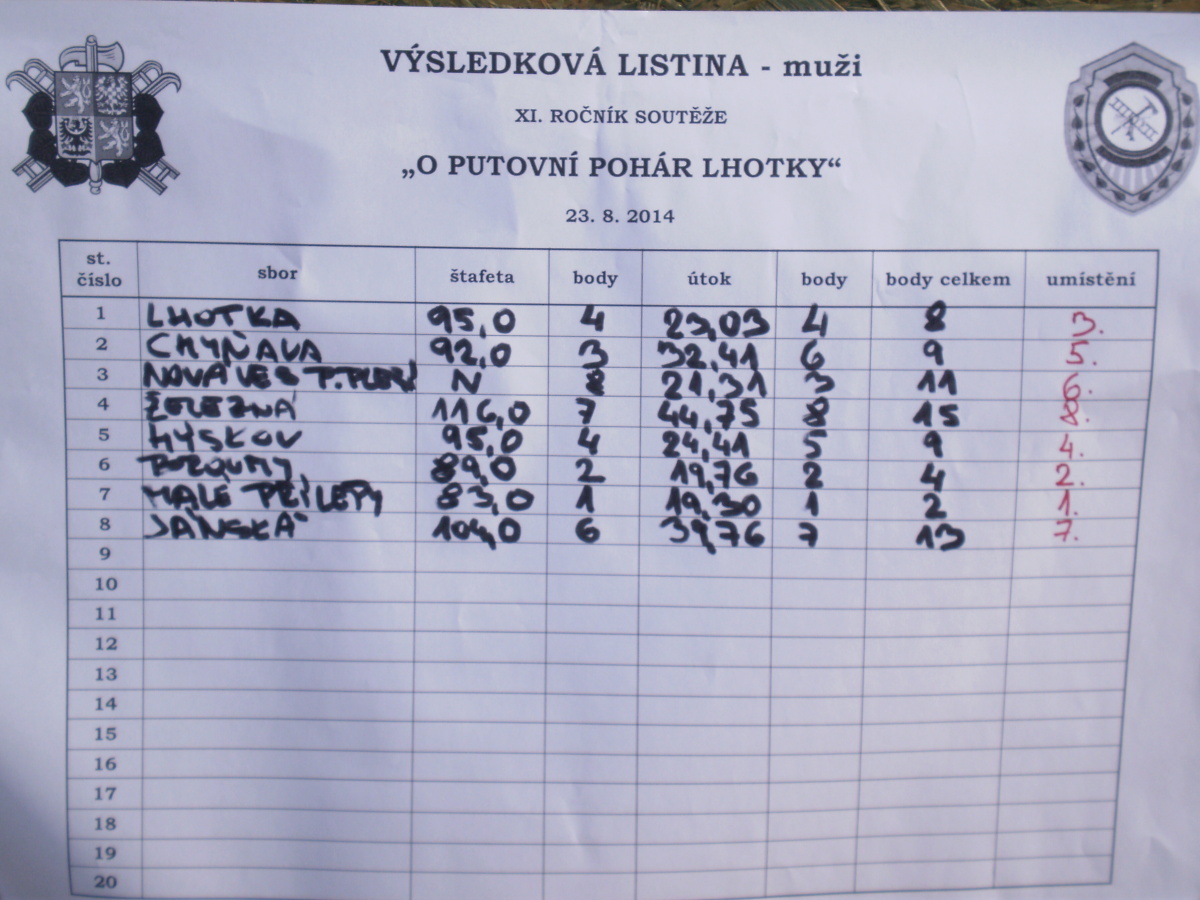 VÝSLEDKOVÁ LISTINA - muži
XI. ROČNÍK SOUTĚŽE
„O PUTOVNÍ POHÁR LHOTKY“
23. 8. 2014
st. číslo sbor štafeta body útok body body celkem umístění
1 LHOTKA 95,0 4 23,03 4 8 3.
2 CHYŇAVA 92,0 3 32,41 6 9 5.
3 NOVÁ VES N 8 21,31 3 11 6.
4 ŽELEZNÁ 116,0 7 44,75 8 15 8.
5 HÝSKOV 95,0 4 24,41 5 9 4.
6 89,0 2 19,76 2 4 2.
7 MALÉ PŘÍLEPY 83,0 1 19,30 1 2 1.
8 JÁNSKÁ 104,0 6 39,76 7 13 7.
9
10
11
12
13
14
15
16
17
18
19
20